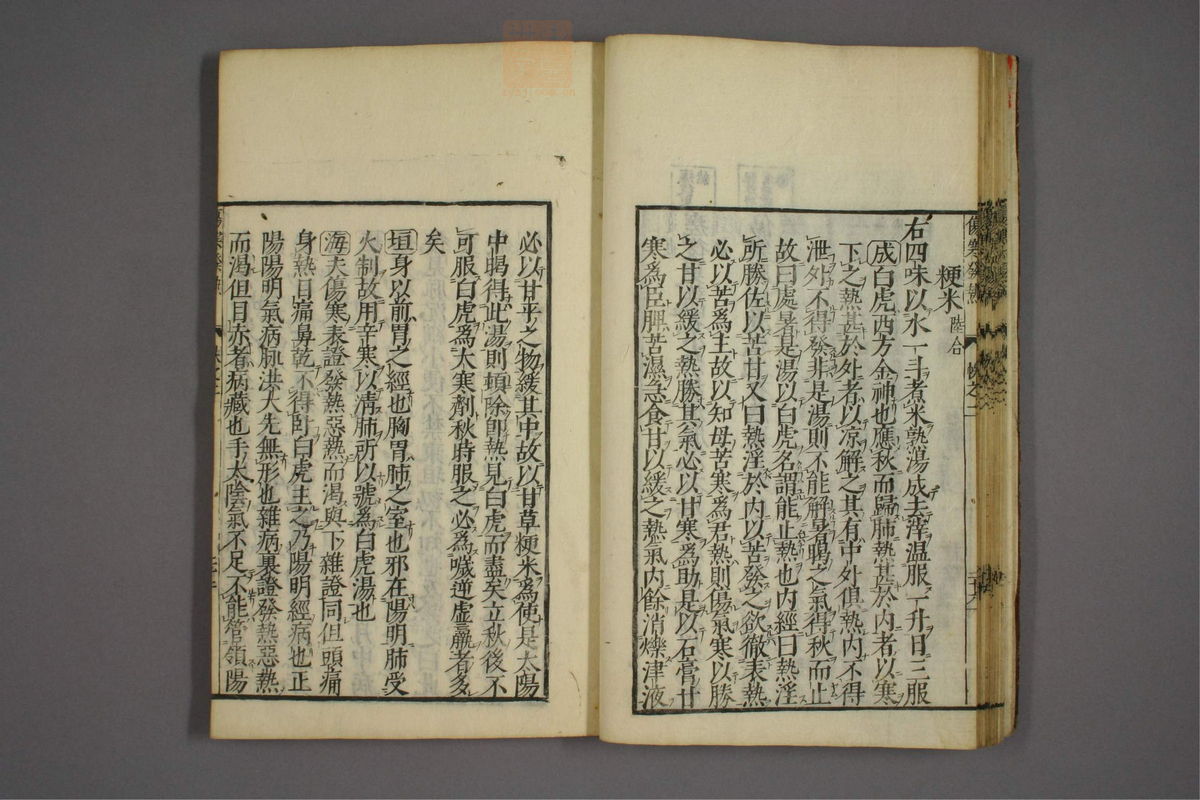 粳米陸合
右四味以水一斗煮米熟湯成去滓温服一升日三服
成白虎西方金神也應秋而歸肺熱甚於内者以寒
下之熱甚於外者以凉解之其有中外俱熱内不得
泄外不得發非是湯則不能解暑暍之氣得秋而止
故曰處暑是湯以白虎名謂能止熱也内經曰熱淫
所勝佐以苦甘又曰熱淫於内以苦發之欲徹表熱
必以苦爲主故以知母苦寒爲君熱則傷氣寒以勝
之甘以緩之熱勝其氣必以甘寒爲助是以石膏甘
寒爲臣脾苦濕急食甘以緩之熱氣内餘消爍津液
必以甘平之物緩其中故以甘草粳米爲使是太陽
中暍得此湯則頓除卽熱見白虎而盡矣立秋後不
可服白虎爲大寒劑秋時服之必爲噦逆虚羸者多
矣
垣身以前胃之經也胸胃肺之室也邪在陽明肺受
火制故用辛寒以清肺所以號爲白虎湯也
海夫傷寒表證發熱惡熱而渴與下雜證同但頭痛
身熱目痛鼻乾不得卧白虎主之乃陽明經病也正
陽陽明氣病脉洪大先無形也雜病裏證發熱惡熱
而渴但目赤者病藏也手太陰氣不足不能管領陽